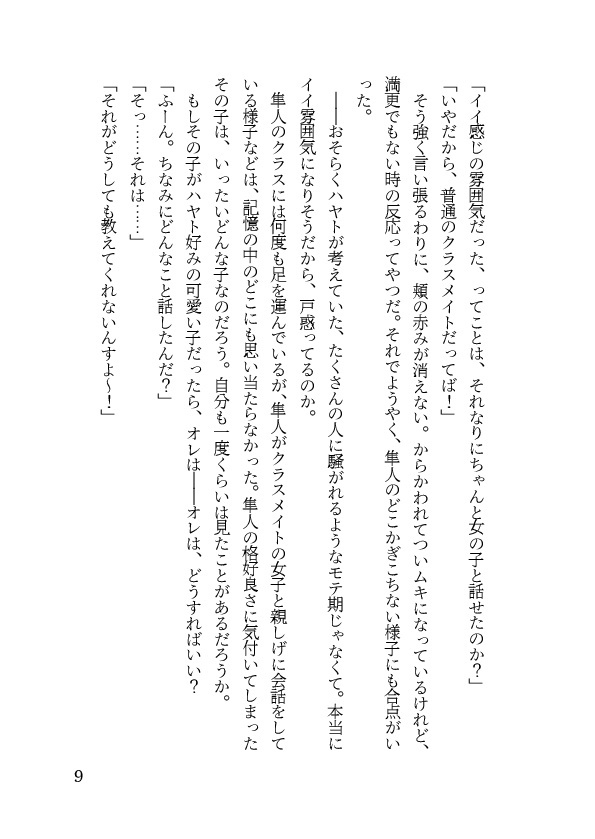 「イイ感じの雰囲気だった、ってことは、それなりにちゃんと女の子と話せたのか？」
「いやだから、普通のクラスメイトだってば！」
　そう強く言い張るわりに、頬の赤みが消えない。からかわれてついムキになっているけれど、
満更でもない時の反応ってやつだ。それでようやく、隼人のどこかぎこちない様子にも合点がい
った。
　――おそらくハヤトが考えていた、たくさんの人に騒がれるようなモテ期じゃなくて。本当に
イイ雰囲気になりそうだから、戸惑ってるのか。
　隼人のクラスには何度も足を運んでいるが、隼人がクラスメイトの女子と親しげに会話をして
いる様子などは、記憶の中のどこにも思い当たらなかった。隼人の格好良さに気付いてしまった
その子は、いったいどんな子なのだろう。自分も一度くらいは見たことがあるだろうか。
　もしその子がハヤト好みの可愛い子だったら、オレは――オレは、どうすればいい？
「ふーん。ちなみにどんなこと話したんだ？」
「そっ……それは……」
「それがどうしても教えてくれないんすよ〜！」
9